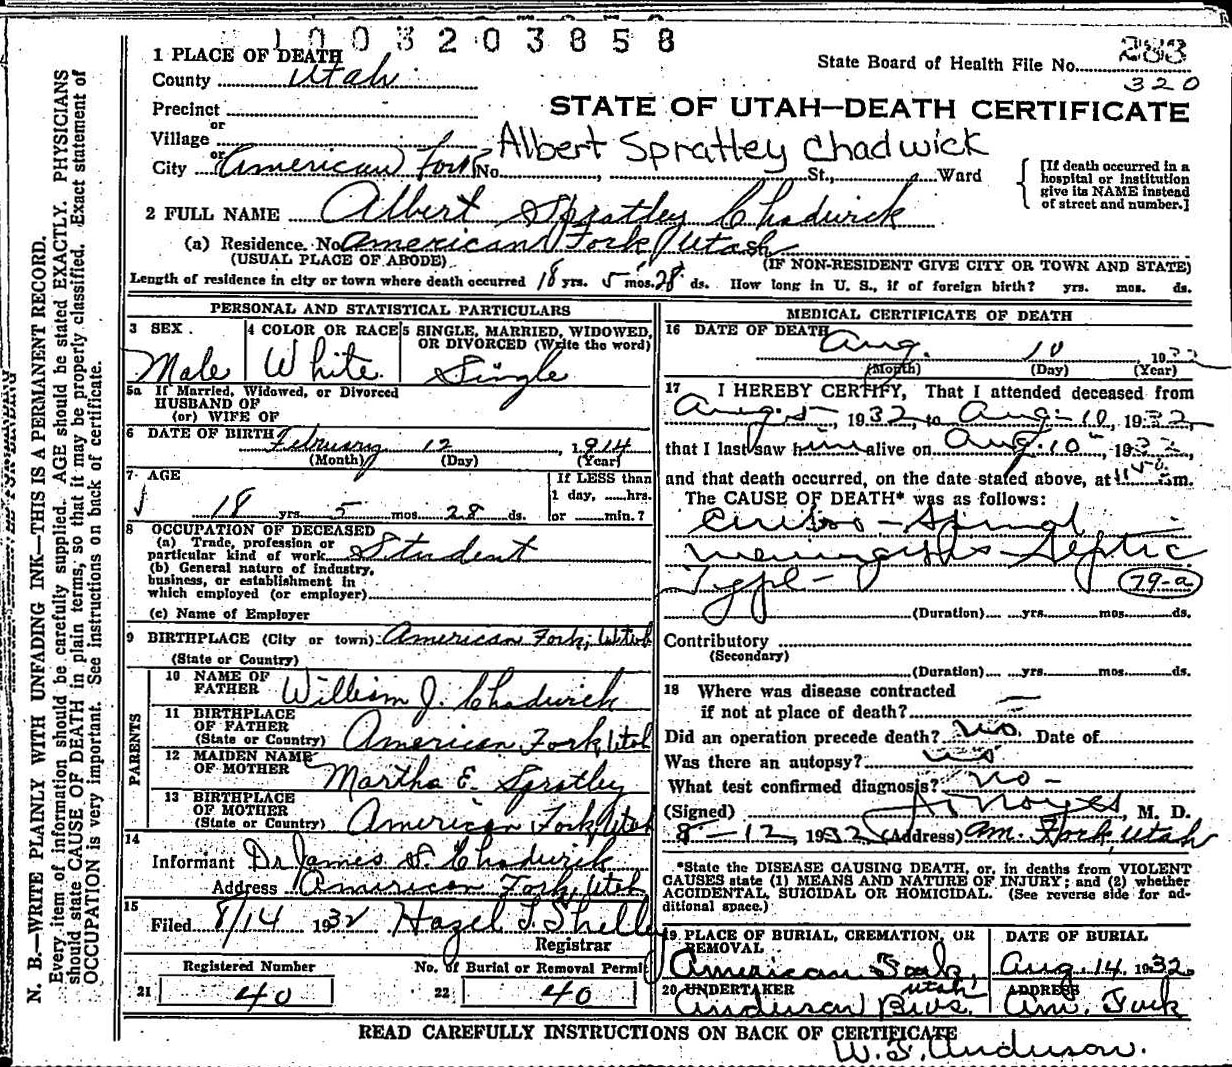 1003203858
1 PLACE OF DEATH
State Board of Health File No. 283
320
County Utah
STATE OF UTAH—DEATH CERTIFICATE
Precinct
or
Village
Albert Sprattey Chadwick
or
City American Fork No. , St., Ward
[If death occurred in a
hospital or institution
give its NAME instead
of street and number.]
2 FULL NAME Albert Spratley Chadwick
(a) Residence. No. American Fork, Utah
(USUAL PLACE OF ABODE) (IF NON-RESIDENT GIVE CITY OR TOWN AND STATE)
Length of residence in city or town where death occurred 18 yrs. 5 mos. 28 ds. How long in U. S., if of foreign birth? yrs. mos. ds.
PERSONAL AND STATISTICAL PARTICULARS
3 SEX
Male
4 COLOR OR RACE
White
5 SINGLE, MARRIED, WIDOWED,
OR DIVORCED (Write the word)
Single
5a If Married, Widowed, or Divorced
HUSBAND OF
(or) WIFE OF
6 DATE OF BIRTH February 12, 1914
(Month) (Day) (Year)
7 AGE
18 yrs. 5 mos. 28 ds.
If LESS than
1 day, hrs.
or min.?
8 OCCUPATION OF DECEASED
(a) Trade, profession or
particular kind of work Student
(b) General nature of industry,
business, or establishment in
which employed (or employer)
(c) Name of Employer
9 BIRTHPLACE (City or town) American Fork, Utah
(State or Country)
PARENTS
10 NAME OF
FATHER William J. Chadwick
11 BIRTHPLACE
OF FATHER
(State or Country) American Fork, Utah
12 MAIDEN NAME
OF MOTHER Martha E. Spratley
13 BIRTHPLACE
OF MOTHER
(State or Country) American Fork, Utah
14
Informant Dr James S. Chadwick
Address American Fork, Utah
15
Filed 8/14 1932 Hazel T. Shelley
Registrar
Registered Number
21 40
No. of Burial or Removal Permit
22 40
MEDICAL CERTIFICATE OF DEATH
16 DATE OF DEATH
Aug. 10, 1932
(Month) (Day) (Year)
17 I HEREBY CERTIFY, That I attended deceased from
Aug. 5, 1932, to Aug. 10, 1932,
that I last saw him alive on Aug. 10, 1932,
and that death occurred, on the date stated above, at m.
The CAUSE OF DEATH* was as follows:
Cerebro-Spinal
Meningitis Septic
Type- 79-a
(Duration) yrs. mos. ds.
Contributory
(Secondary)
(Duration) yrs. mos. ds.
18 Where was disease contracted
if not at place of death?
Did an operation precede death? No. Date of
Was there an autopsy? No
What test confirmed diagnosis? No -
(Signed) Noyes, M. D.
8-12, 1932 (Address) Am. Fork, Utah
*State the DISEASE CAUSING DEATH, or, in deaths from VIOLENT
CAUSES state (1) MEANS AND NATURE OF INJURY; and (2) whether
ACCIDENTAL, SUICIDAL OR HOMICIDAL. (See reverse side for ad-
ditional space.)
19 PLACE OF BURIAL, CREMATION, OR
REMOVAL
American Fork,
Utah
DATE OF BURIAL
Aug. 14, 1932
20 UNDERTAKER
Anderson Bros.
ADDRESS
Am. Fork
READ CAREFULLY INSTRUCTIONS ON BACK OF CERTIFICATE
W. S. Anderson.
N. B.—WRITE PLAINLY WITH UNFADING INK—THIS IS A PERMANENT RECORD.
Every item of information should be carefully supplied. AGE should be stated EXACTLY. PHYSICIANS
should state CAUSE OF DEATH in plain terms, so that it may be properly classified. Exact statement of
OCCUPATION is very important. See instructions on back of certificate.